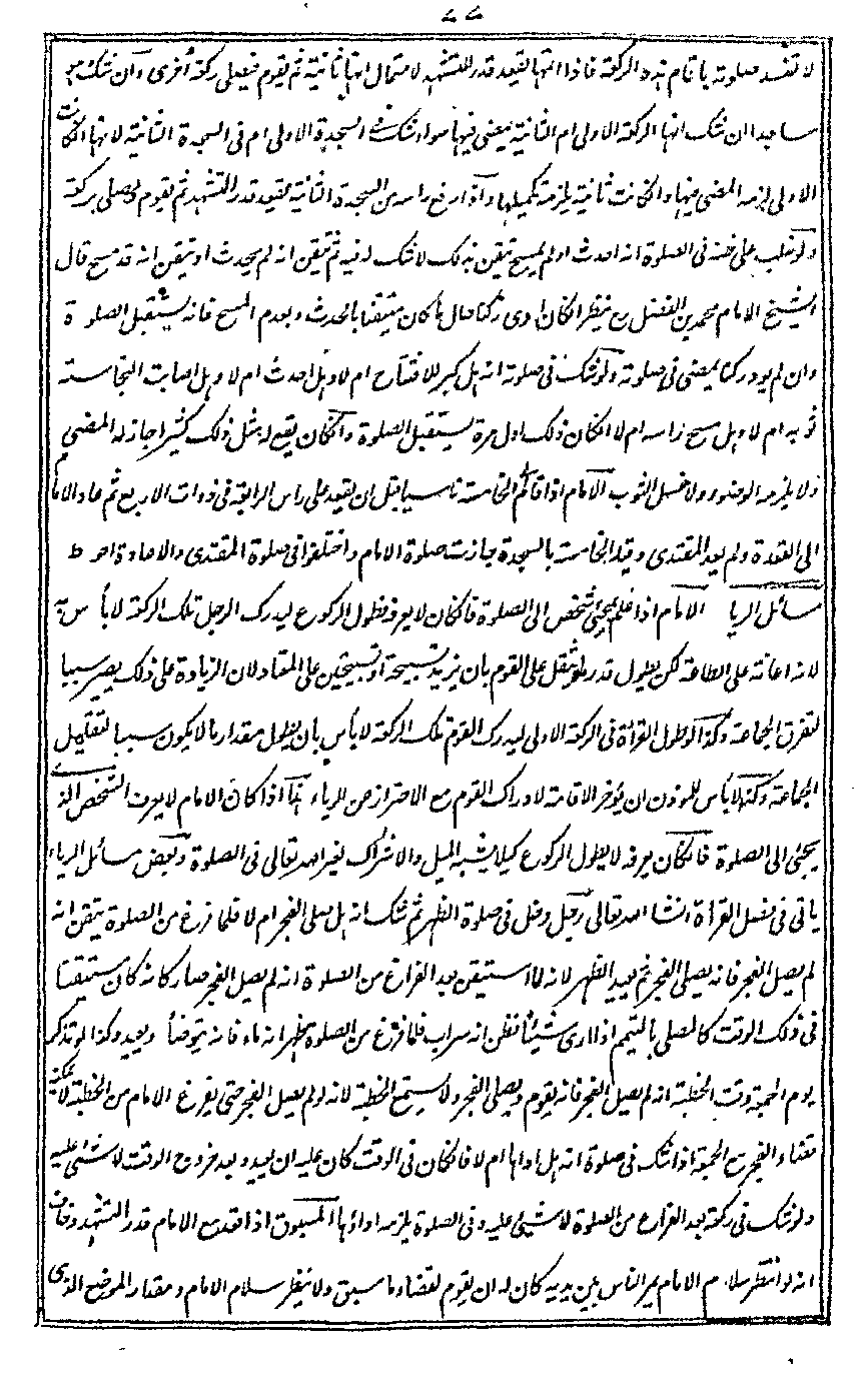 ٧٧
لا تفسد صلوته باتمام هذه الركعة فاذا اتمها يقعد قدر التشهد لاحتمال انها ثانية ثم يقوم فيصلى ركعة أخرى وان شك هو
ساجد ان شك انها الركعة الاولى ام الثانية يمضى فيها سواء شك فى السجدة الاولى ام فى السجدة الثانية لانها ان كانت
الاولى لزمه المضى فيها وان كانت ثانية يلزمه تكميلها واذا رفع راسه من السجدة الثانية يقعد قدر التشهد ثم يقوم ويصلى بركعة
ولو غلب على ظنه فى الصلوة انه احدث او لم يمسح تيقن بذلك لا شك له فيه ثم تيقن انه لم يحدث او تيقن انه قد مسح قال
الشيخ الامام محمد بن الفضل رح ينظر ان كان ادى ركنا حال ما كان متيقنا بالحدث وبعدم المسح فانه يستقبل الصلوة
وان لم يود ركنا يمضى فى صلوته ولو شك فى صلوته انه هل كبر للافتتاح ام لا وهل احدث ام لا وهل اصابت النجاسته
ثوبه ام لا وهل مسح راسه ام لا ان كان ذلك اول مرة يستقبل الصلوة وان كان يقع له مثل ذلك كثيرا جاز له المضى
ولا يلزمه الوضوء ولا غسل الثوب الامام اذا قام الى الخامسة ناسيا قبل ان يقعد على راس الرابعة فى ذوات الاربع ثم عاد الامام
الى القعدة ولم يعد المقتدى وقيد الخامسة بالسجدة جازت صلوة الامام واختلفوا فى صلوة المقتدى والاعادة احوط
مسائل الريا الامام اذا علم بمجئ شخص الى الصلوة فان كان لا يعرفه فطول الركوع ليدرك الرجل تلك الركعة لا بأس به
لانه اعانة على الطاعة لكن يطول قدر ما لا يثقل على القوم بان يزيد تسبيحة او تسبيحتين على المعتاد لان الزيادة على ذلك يصير سببا
لتفرق الجماعة وكذا لو طول القرأة فى الركعة الاولى ليدرك القوم تلك الركعة لا بأس بان يطول مقدار ما لا يكون سببا لتقليل
الجماعة وكذا لا بأس للموذن ان يؤخر الاقامة لادراك القوم مع الاحتراز عن الرياء هذا اذا كان الامام لا يعرف الشخص الذى
يجئ الى الصلوة فان كان يعرفه لا يطول الركوع كيلا يشبه الميل والاشراك لغير الله تعالى فى الصلوة وبعض مسائل الرياء
ياتى فى فصل القرأة انشا الله تعالى رجل دخل فى صلوة الظهر ثم شك انه هل صلى الفجر ام لا فلما فرغ من الصلوة تيقن انه
لم يصل الفجر فانه يصلى الفجر ثم يعيد الظهر لانه لما استيقن بعد الفراغ من الصلوة انه لم يصل الفجر صار كانه كان مستيقنا
فى ذلك الوقت كالمصلى بالتيمم اذا راى شيئا فظن انه سراب فلما فرغ من الصلوة ظهر انه ماء فانه يتوضأ ويعيد وكذا لو تذكر
يوم الجمعة وقت الخطبة انه لم يصل الفجر فانه يقوم ويصلى الفجر ولا يستمع الخطبة لانه لو لم يصل الفجر حتى يفرغ الامام من الخطبة لا يمكنه
قضاء الفجر مع الجمعة اذا شك فى صلوة انه هل اداها ام لا فان كان فى الوقت كان عليه ان يعيد وبعد خروج الوقت لا شئ عليه
ولو شك فى ركعة بعد الفراغ من الصلوة لا شئ عليه وفى الصلوة يلزمه اداؤها المسبوق اذا قعد مع الامام قدر التشهد وخاف
انه لو انتظر سلام الامام يمر الناس بين يديه كان له ان يقوم لقضاء ما سبق ولا ينتظر سلام الامام ومقدار الموضع الذى